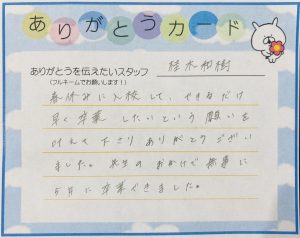 ありがとうカード
ありがとうを伝えたいスタッフ
(フルネームでお願いします！)
桂木和樹
春休みに入校して、できるだけ
早く卒業したいという願いを
叶えて下さりありがとうござい
ました。先生のおかげで無事に
5月に卒業できました。